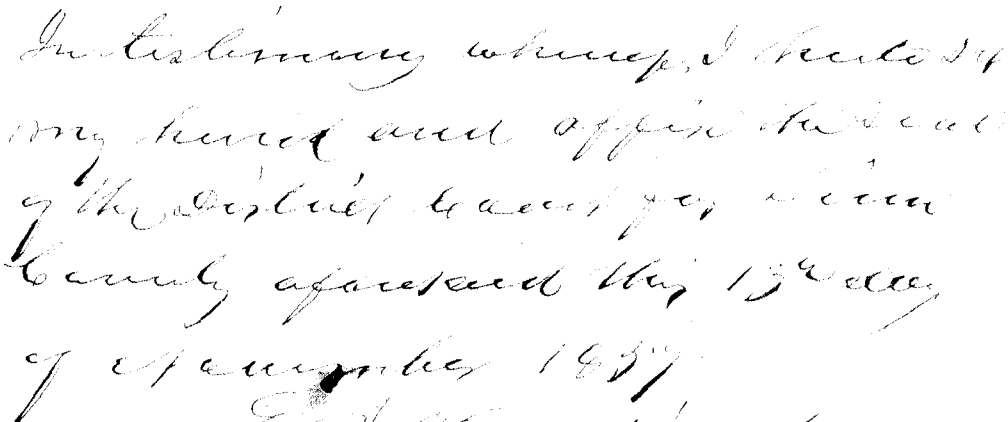 In testimony whereof, I hereto set
my hand and affix the seal
of the District Court for Linn
County aforesaid this 13th day
of November 1857